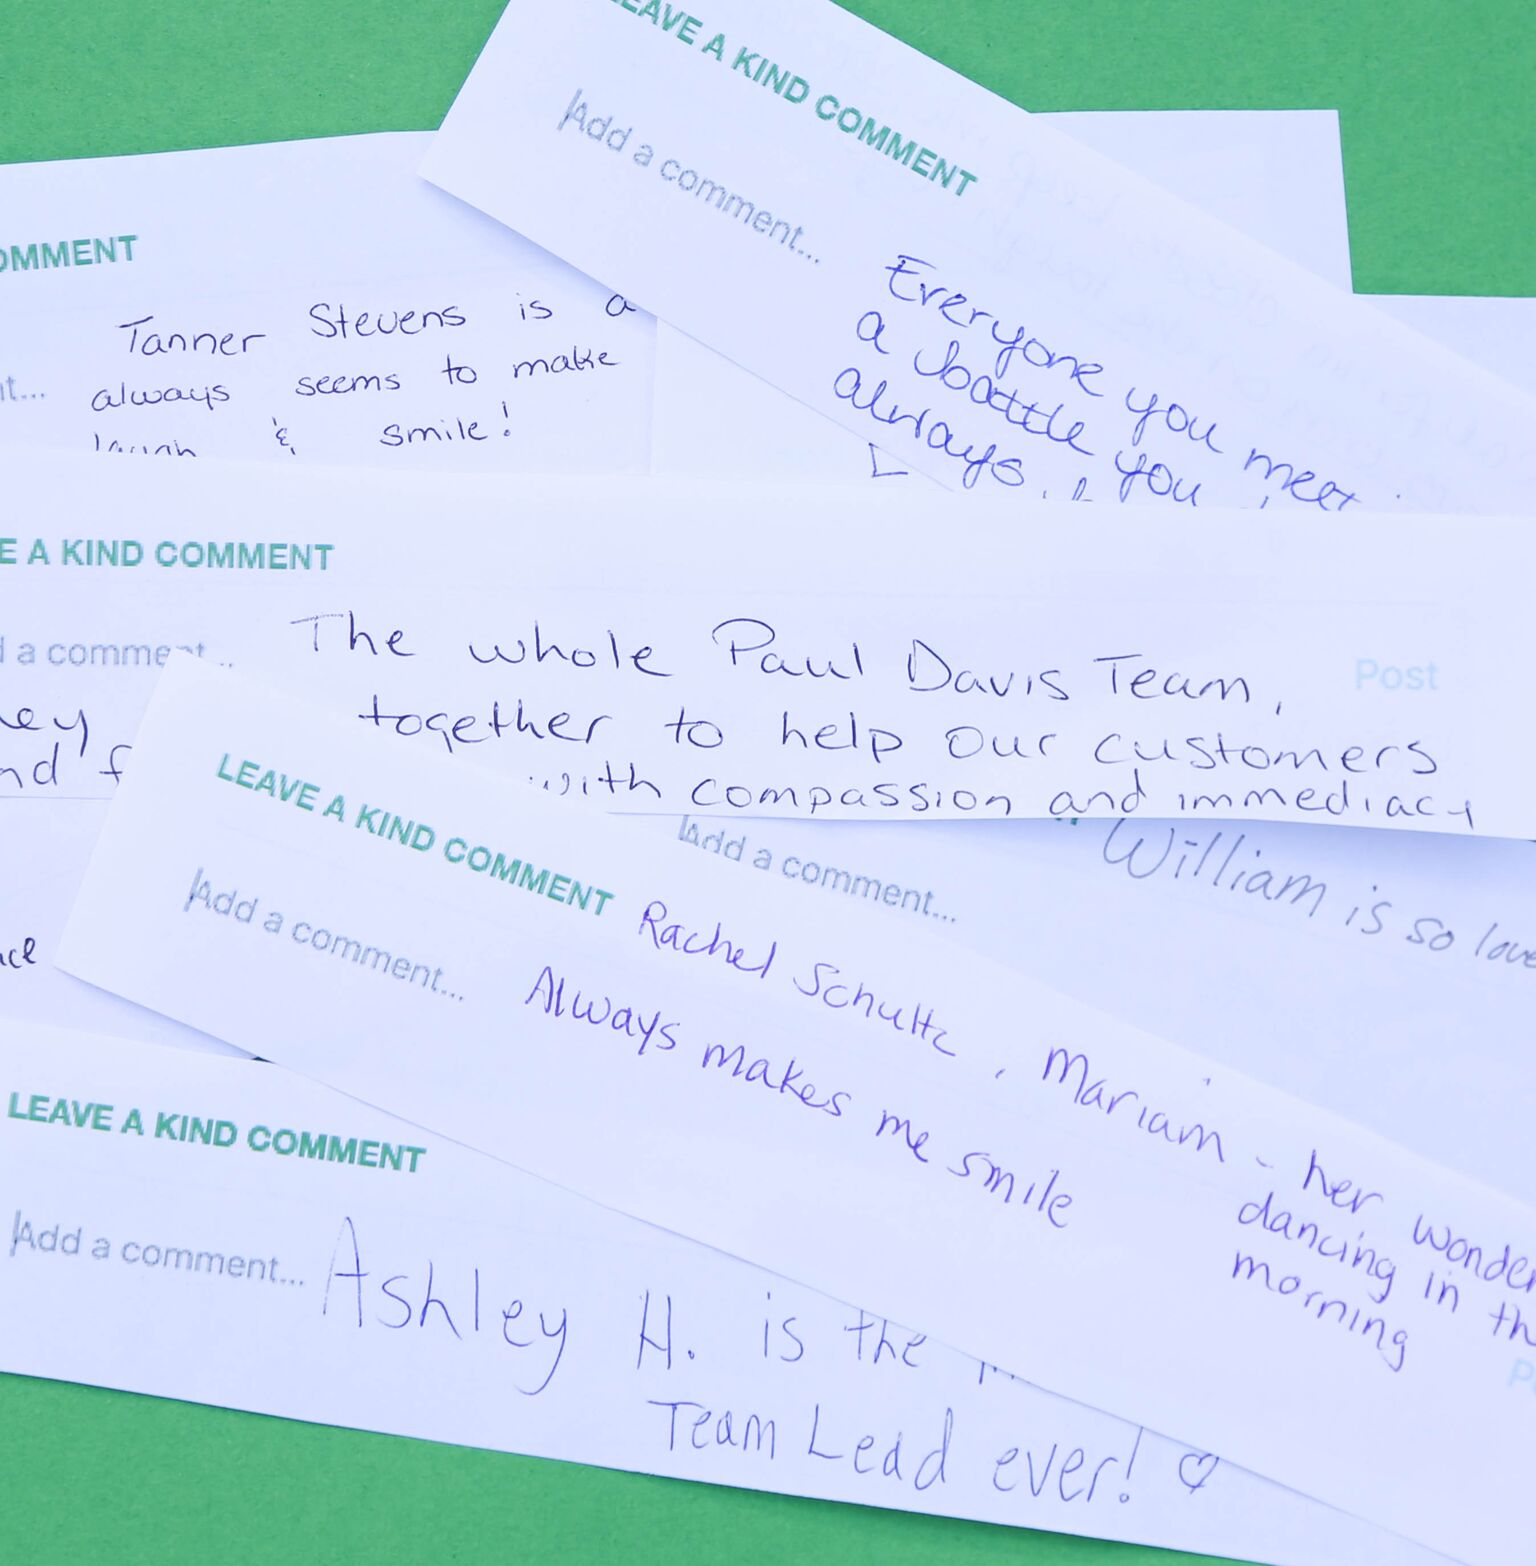 LEAVE A KIND COMMENT
Add a comment...
Everyone you meet
a battle you
always
COMMENT
Tanner Stevens is a
always seems to make
laugh & smile!
A KIND COMMENT
a comment...
The whole Paul Davis Team,
Post
together to help our customers
with compassion and immediacy
Add a comment...
William is so
LEAVE A KIND COMMENT
Add a comment...
Rachel Schultz, Mariam - her
Always makes me smile
dancing in
morning
LEAVE A KIND COMMENT
Add a comment...
Ashley H. is the
Team Lead ever! ♡